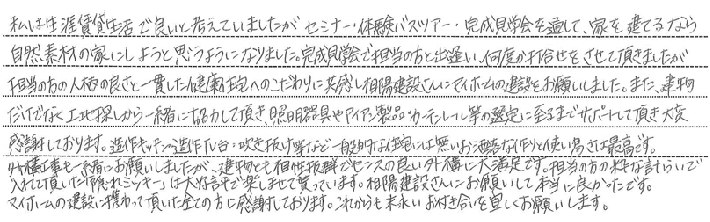 私は生涯賃貸生活で良いと考えていましたがセミナー・体験バスツアー・完成見学会を通して、家を建てるなら
自然素材の家にしようと思うようになりました。完成見学会で担当の方と出逢い、何度か打合せをさせて頂きましたが
担当の方の人柄の良さと一貫した健康住宅へのこだわりに共感し相陽建設さんにマイホームの建設をお願いしました。また、建物
だけでなく土地探しから一緒に協力して頂き照明器具やアイアン製品・カーテンレール等の選定に至るまでサポートして頂き大変
感謝しております。造作キッチン・造作洗面台・吹き抜け等など一般的な住宅には無いお洒落な作りと使い易さは最高です。
外構工事も一緒にお願いしましたが、建物とも相性抜群でセンスの良い外構に大満足です。担当の方の粋な計らいで
入れて頂いた「隠れミッキー」は大好評で楽しませて貰っています。相陽建設さんにお願いして本当に良かったです。
マイホームの建設に携わって頂いた全ての方に感謝しております。これからも末永いお付き合いを宜しくお願いします。